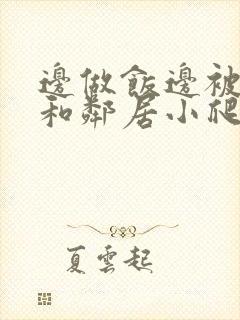 邊做飯邊被
和鄰居小爬
夏雲起